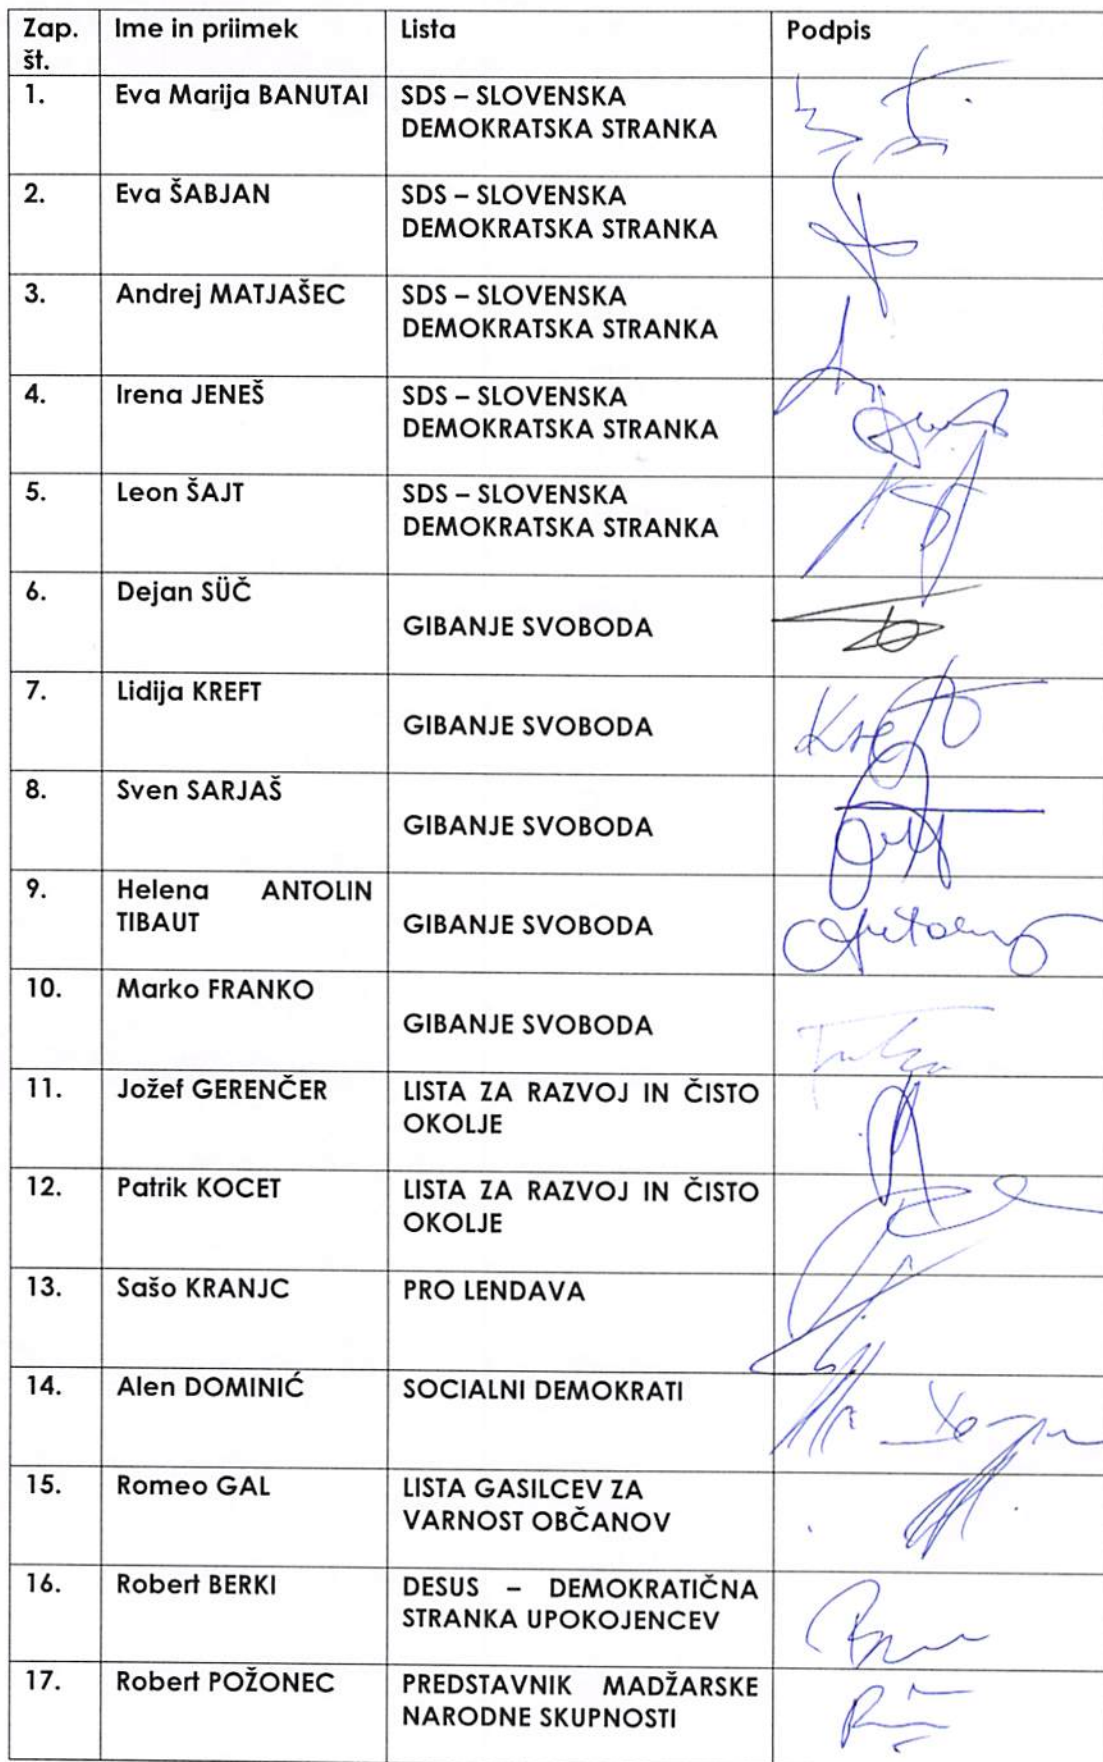 Zap. št. Ime in priimek Lista Podpis
1. Eva Marija BANUTAI SDS – SLOVENSKA
DEMOKRATSKA STRANKA
2. Eva ŠABJAN SDS – SLOVENSKA
DEMOKRATSKA STRANKA
3. Andrej MATJAŠEC SDS – SLOVENSKA
DEMOKRATSKA STRANKA
4. Irena JENEŠ SDS – SLOVENSKA
DEMOKRATSKA STRANKA
5. Leon ŠAJT SDS – SLOVENSKA
DEMOKRATSKA STRANKA
6. Dejan SÜČ
GIBANJE SVOBODA
7. Lidija KREFT
GIBANJE SVOBODA
8. Sven SARJAŠ
GIBANJE SVOBODA
9. Helena ANTOLIN
TIBAUT GIBANJE SVOBODA
10. Marko FRANKO
GIBANJE SVOBODA
11. Jožef GERENČER LISTA ZA RAZVOJ IN ČISTO
OKOLJE
12. Patrik KOCET LISTA ZA RAZVOJ IN ČISTO
OKOLJE
13. Sašo KRANJC PRO LENDAVA
14. Alen DOMINIĆ SOCIALNI DEMOKRATI
15. Romeo GAL LISTA GASILCEV ZA
VARNOST OBČANOV
16. Robert BERKI DESUS – DEMOKRATIČNA
STRANKA UPOKOJENCEV
17. Robert POŽONEC PREDSTAVNIK MADŽARSKE
NARODNE SKUPNOSTI